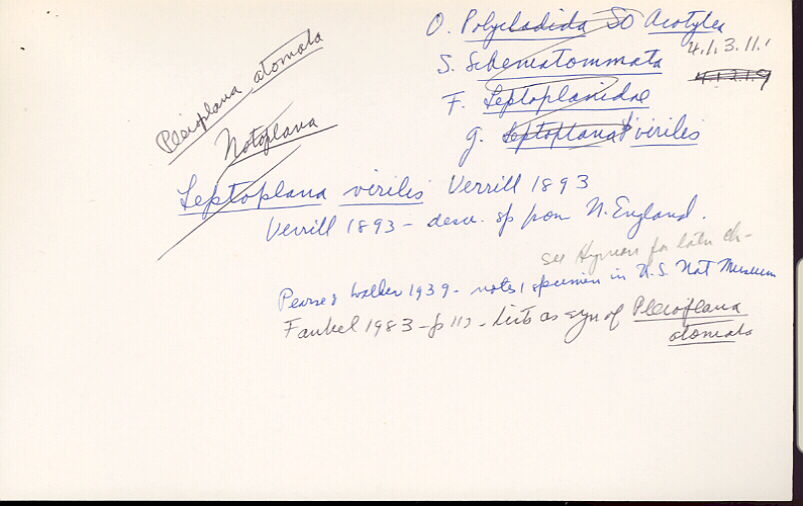 O. Polycladida SO Acotylea
4.1.3.11.1
S. Schematommata
4.1.2.1.9
F. Leptoplanidae
g. Leptoplana virilis
Pleioplana atomata
Notoplana
Leptoplana virilis Verrill 1893
Verrill 1893 - desc. sp from N. England.
see Hyman for later ch-
Pearse & Walker 1939 - notes 1 specimen in U.S. Nat Museum
Faubel 1983 - p 117 - Lists as syn of Pleioplana
atomata